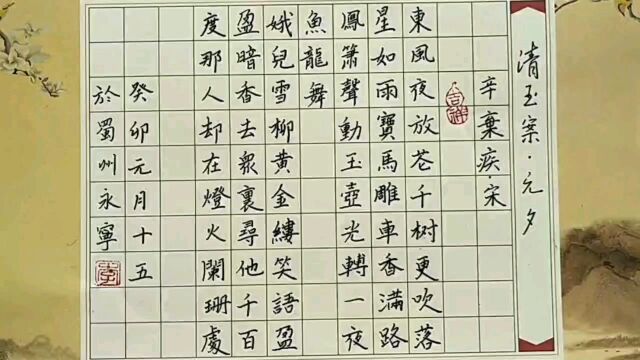 清玉案·元夕
辛棄疾·宋
吉祥
東風夜放花千树更吹落
星如雨寶馬雕車香滿路
鳳簫聲動玉壺光轉一夜
魚龍舞
娥兒雪柳黄金縷笑語盈
盈暗香去衆裏尋他千百
度那人却在燈火闌珊處
癸卯元月十五
於蜀州永寧